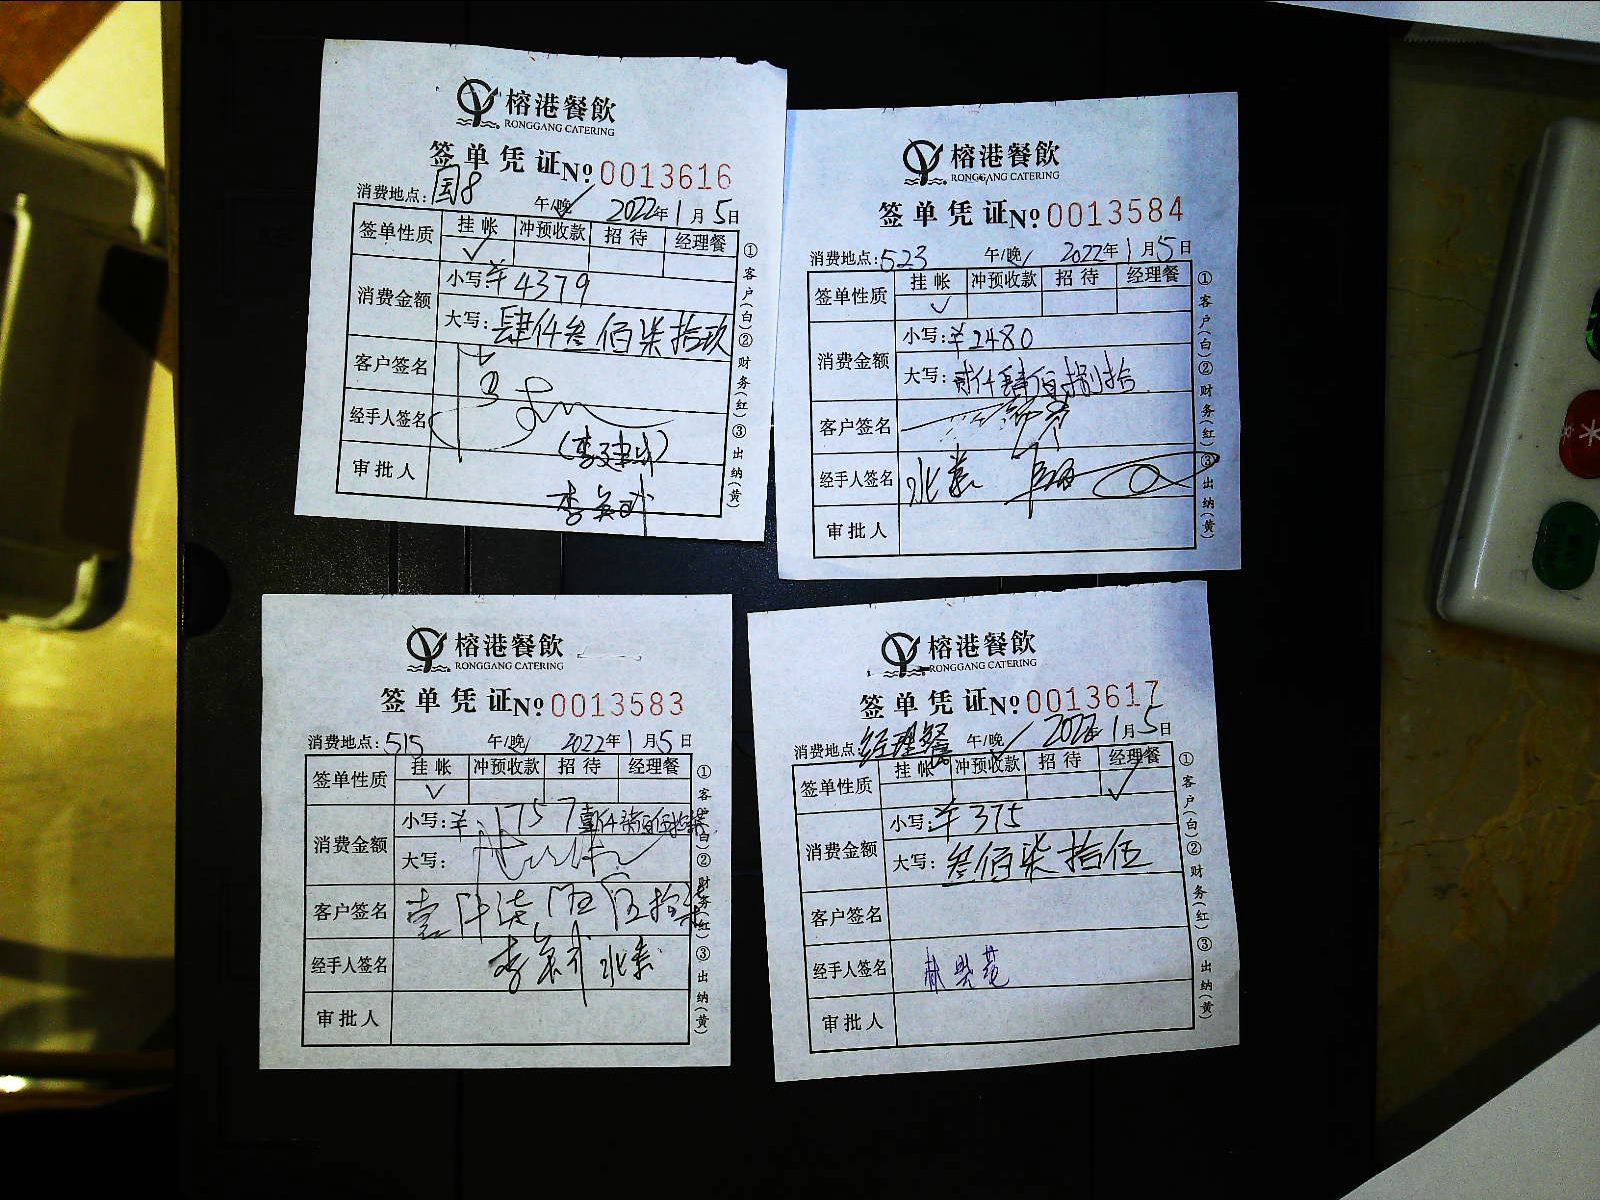 榕港餐飲
RONGGANG CATERING
签单凭证 Nº 0013616
消费地点:国8 午/晚 2022年1月5日
签单性质 挂帐 冲预收款 招待 经理餐
✓
消费金额 小写:¥4379
大写:肆仟叁佰柒拾玖
客户签名
经手人签名
(李建武)
审批人
①客户(白)②财务(红)③出纳(黄)
榕港餐飲
RONGGANG CATERING
签单凭证 Nº 0013584
消费地点:523 午/晚 2022年1月5日
签单性质 挂帐 冲预收款 招待 经理餐
✓
消费金额 小写:¥2480
大写:贰仟肆佰捌拾
客户签名
经手人签名
审批人
①客户(白)②财务(红)③出纳(黄)
榕港餐飲
RONGGANG CATERING
签单凭证 Nº 0013583
消费地点:515 午/晚 2022年1月5日
签单性质 挂帐 冲预收款 招待 经理餐
✓
消费金额 小写:¥1757 壹仟柒佰伍拾柒
大写:
客户签名 壹仟柒佰伍拾柒
经手人签名
审批人
①客户(白)②财务(红)③出纳(黄)
榕港餐飲
RONGGANG CATERING
签单凭证 Nº 0013617
消费地点:经理餐 午/晚 2022年1月5日
签单性质 挂帐 冲预收款 招待 经理餐
✓
消费金额 小写:¥375
大写:叁佰柒拾伍
客户签名
经手人签名
审批人
①客户(白)②财务(红)③出纳(黄)